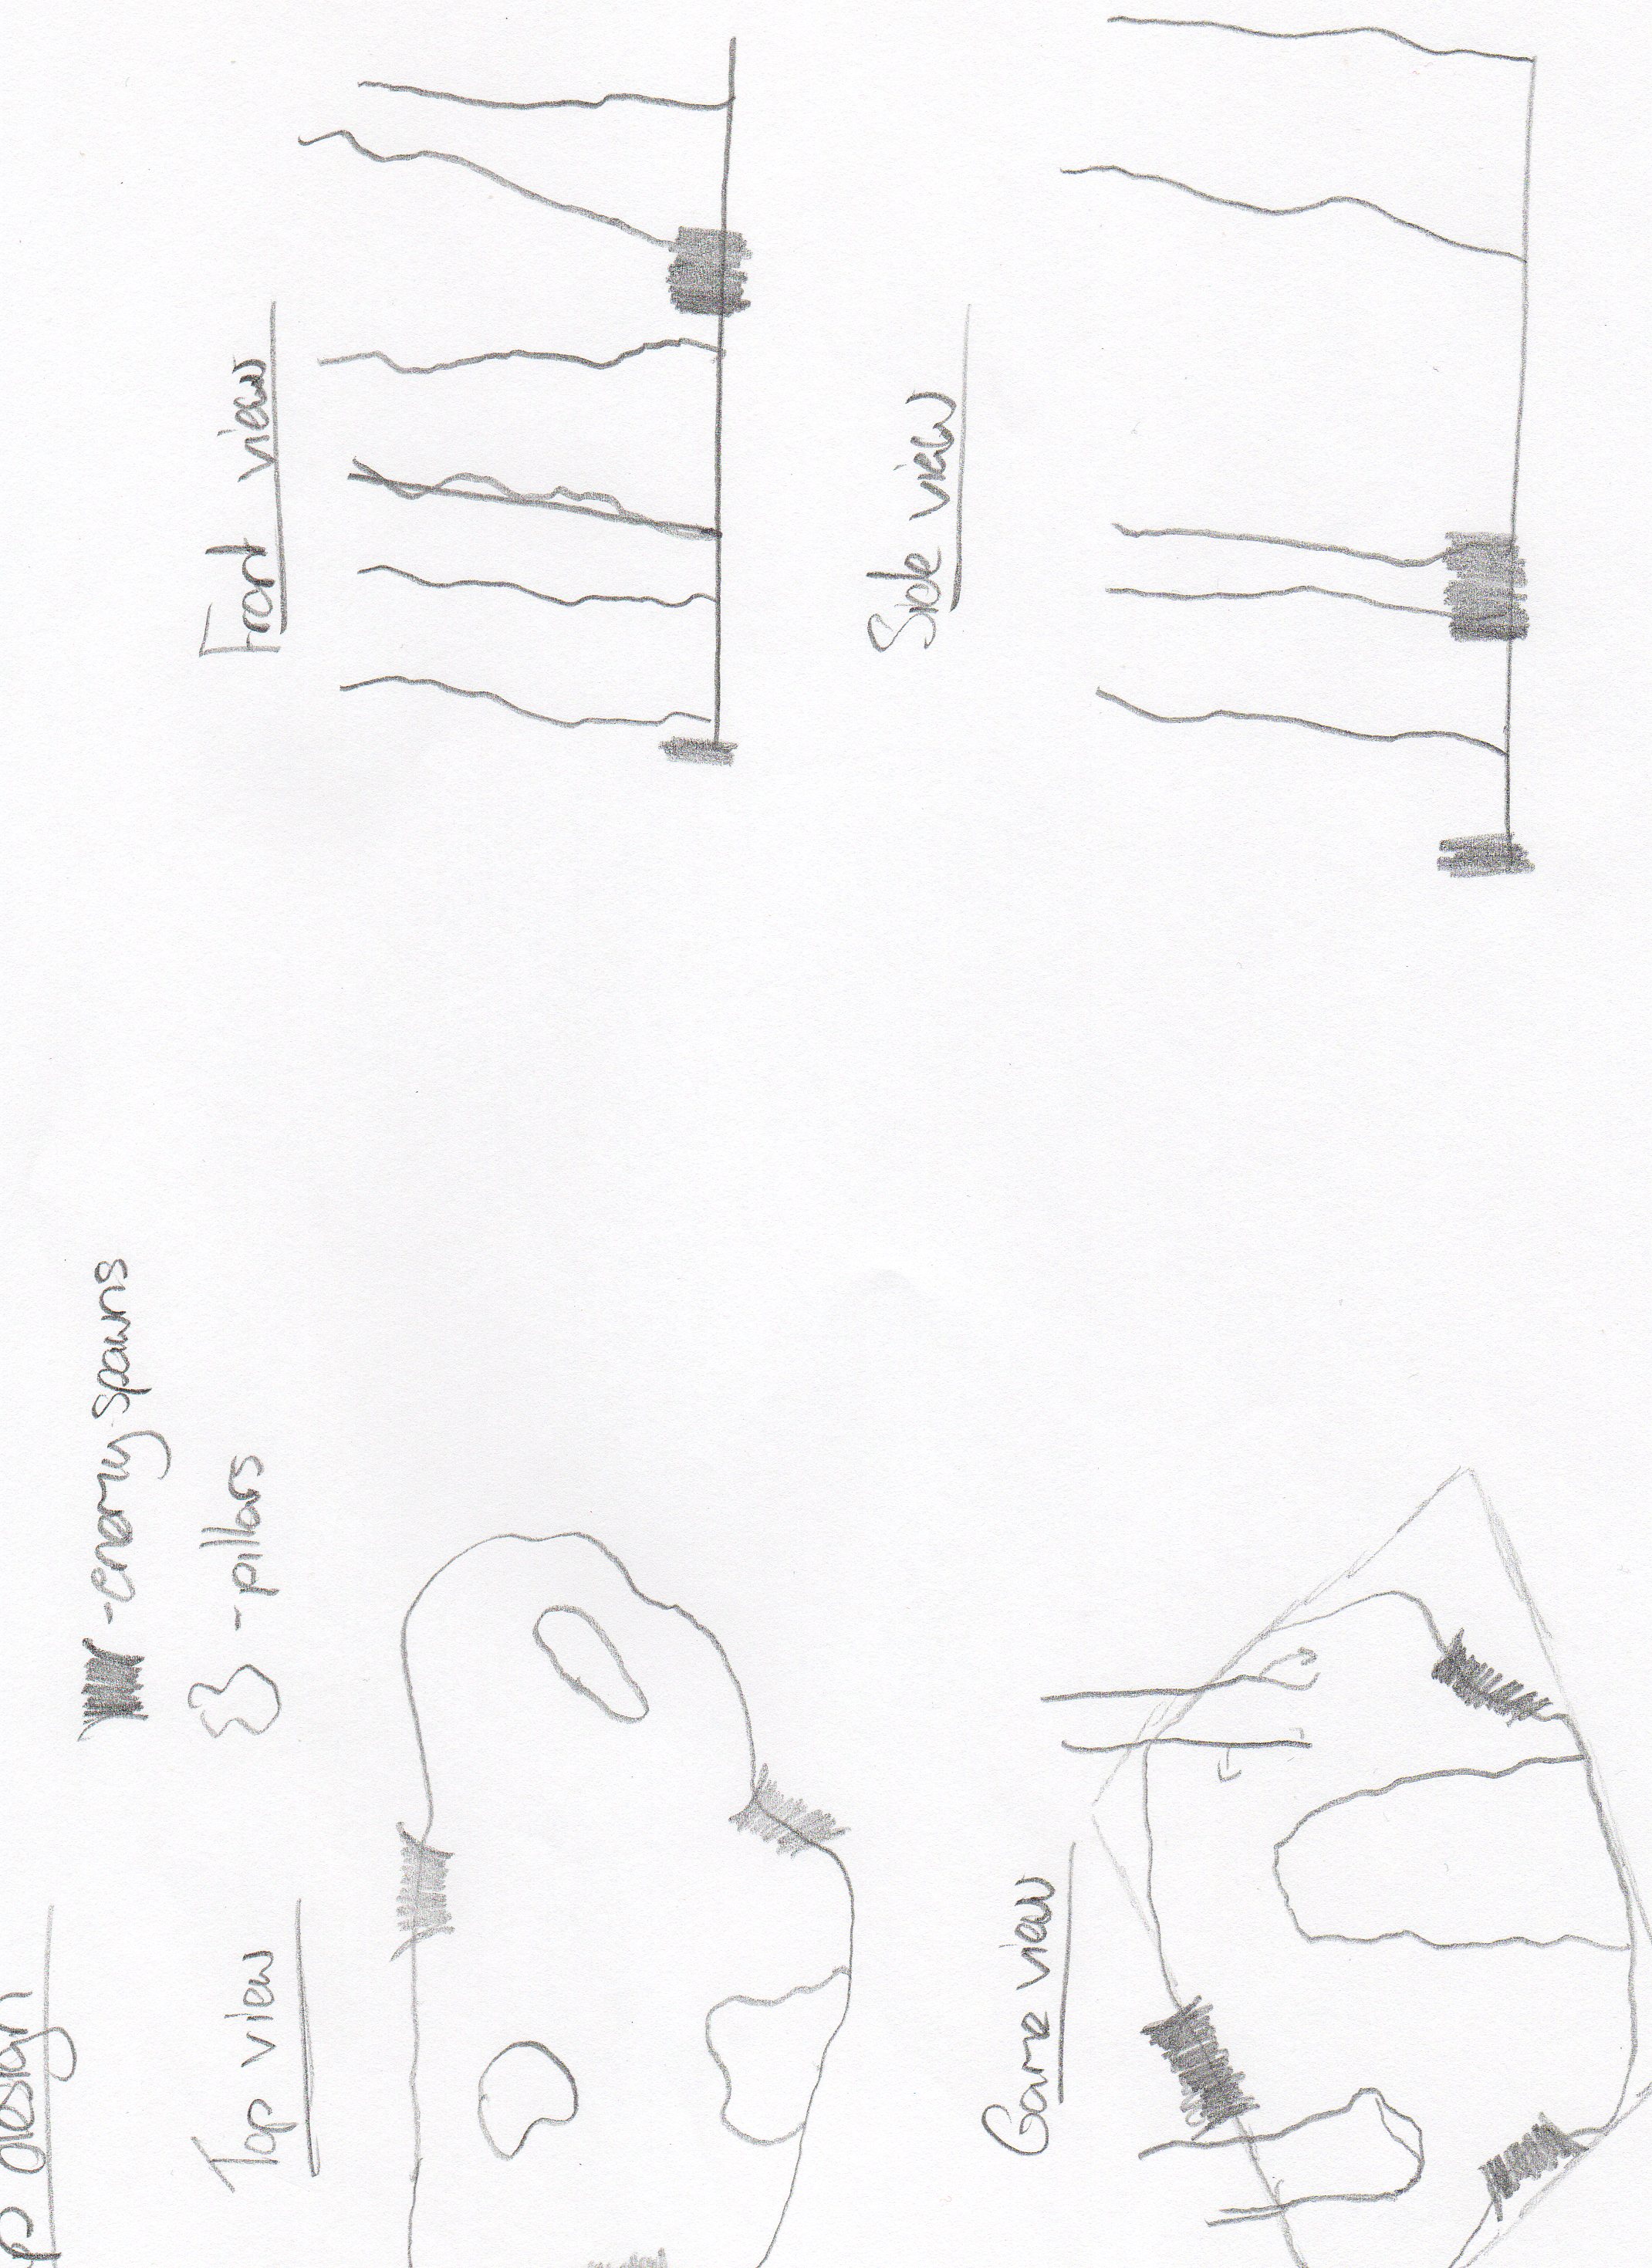 design
-enemy spawns
-pillars
Top view
Front view
Game view
Side view